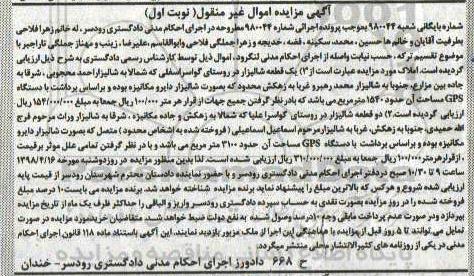 آگهی مزایده اموال غیر منقول( نوبت اول)
شماره بایگانی شعبه ۹۸۰۰۴۴ بموجب پرونده اجرائی شماره ۹۸۰۰۴۴ مطروحه در اجرای احکام مدنی دادگستری رودسر، له خانم زهرا فلاحی
بطرفیت آقایان و خانم ها حسین، محمد، سکینه، فضه، خدیجه و زهرا جملگی فلاحی و ابوالقاسم، علیرضا، زینب و مهناز جملگی تاراجیر با
موضوع تقسیم ترکه ، حسب نیابت واصله از اجرای احکام مدنی لنگرود، اموال ذیل توسط کارشناس رسمی دادگستری به شرح ذیل ارزیابی
گردیده است. املاک مورد مزایده عبارت است از:۳) یک قطعه شالیزار در روستای گواسراسفلی که شمالا به شالیزار احمد محجوبی، شرقا به
جاده بین مزارع، جنوبا به شالیزار محمد رهبر و غربا به زهکش محدود که بصورت شالیزار دایر و مکانیزه بوده و براساس برداشت با دستگاه
GPS مساحت آن حدود ۱۵۴۰ متر مربع می باشد که با در نظر گرفتن جمیع جهات از قرار هر متر ۱۰۰/۰۰۰ ریال جمعا به مبلغ ۱۵۴/۰۰۰/۰۰۰ ریال
ارزیابی گردیده است.۲) دو قطعه شالیزار در روستای گواسرا علیا که شمالا به زهکش و جاده مکانیزه ، شرقا به شالیزار وراث مرحوم فرج
الله حمیدی، جنوبا به زهکش، غربا به شالیزار مرحوم اسماعیل اسماعیلی ( فروخته شده به اشخاص) محدود) متصل که بصورت شالیزار دایر و
مکانیزه بوده و براساس برداشت با دستگاه GPS مساحت آن حدود ۳۱۰۰ متر مربع می باشد و با در نظر گرفتن تمامی علل موثر برقیمت
، از قرار هر متر ۱۰۰/۰۰۰ ریال جمعا به مبلغ ۳۱۰/۰۰۰/۰۰۰ ریال ارزیابی شده است. لذا بدین منظور مزایده در روز دوشنبه مورخه ۱۳۹۸/۴/۱۶
ساعت ۹ تا ۱۰/۳۰ صبح در دفتر اجرای احکام مدنی دادگستری رودسر و با حضور نماینده دادستان محترم شهرستان رودسر از قیمت پایه
ارزیابی شده شروع و هر کس که بالاترین مبلغ را پیشنهاد نماید برنده مزایده شناخته خواهد شد. برنده مزایده می بایست ۱۰ درصد مبلغ
فروخته شده را در روز مزایده بصورت نقدی به حساب سپرده دادگستری رودسر واریز و الباقی را حداکثر ظرف یک ماه از تاریخ مزایده
بپردازد و در صورت عدم پرداخت مابقی وجه ۱۰ درصد وصول شده به نفع دولت ضبط خواهد شد. متقاضیان خرید مورد مزایده در صورت
تمایل می توانند تا ۵ روز قبل از مزایده با هماهنگی این اجرا از ملک مزبور بازدید نمایند. این آگهی باستناد ماده ۱۱۸ قانون اجرای احکام
مدنی در یکی از روزنامه های کثیرالانتشار محلی منتشر میگردد.
ح ۶۶۸ دادورز اجرای احکام مدنی دادگستری رودسر - خندان